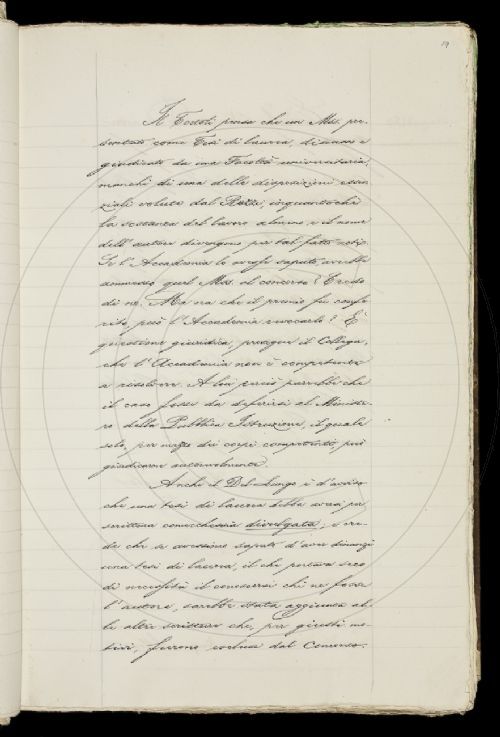 19
Il Tortoli pensa che un Mss. pre-
sentato come Tesi di laurea, discusso e
giudicato da una Facoltà universitaria,
manchi di una delle disposizioni essen-
ziali volute dal Rezzi, inquantochè
la sostanza del lavoro almeno e il nome
dell'autore divengono per tal fatto noti.
Se l'Accademia lo avesse saputo avrebbe
ammesso quel Mss. al concorso? Credo
di no. Ma ora che il premio fu confe-
rito, può l'Accademia revocarlo? È
questione giuridica, prosegue il Collega,
che l'Accademia non è competente
a risolvere. A lui perciò parrebbe che
il caso fosse da deferirsi al Ministe-
ro della Pubblica Istruzione, il quale
solo, per mezzo dei corpi competenti, può
giudicarne autorevolmente.
Anche il Del Lungo è d'avviso
che una tesi di laurea debba aversi per
scrittura comecchessia divulgata, e cre-
de che se avessimo saputo d'aver dinanzi
una tesi di laurea, il che portava seco
di necessità il conoscersi chi ne fosse
l'autore, sarebbe stata aggiunta al-
le altre scritture che, per giusti mo-
tivi, furono escluse dal Concorso.